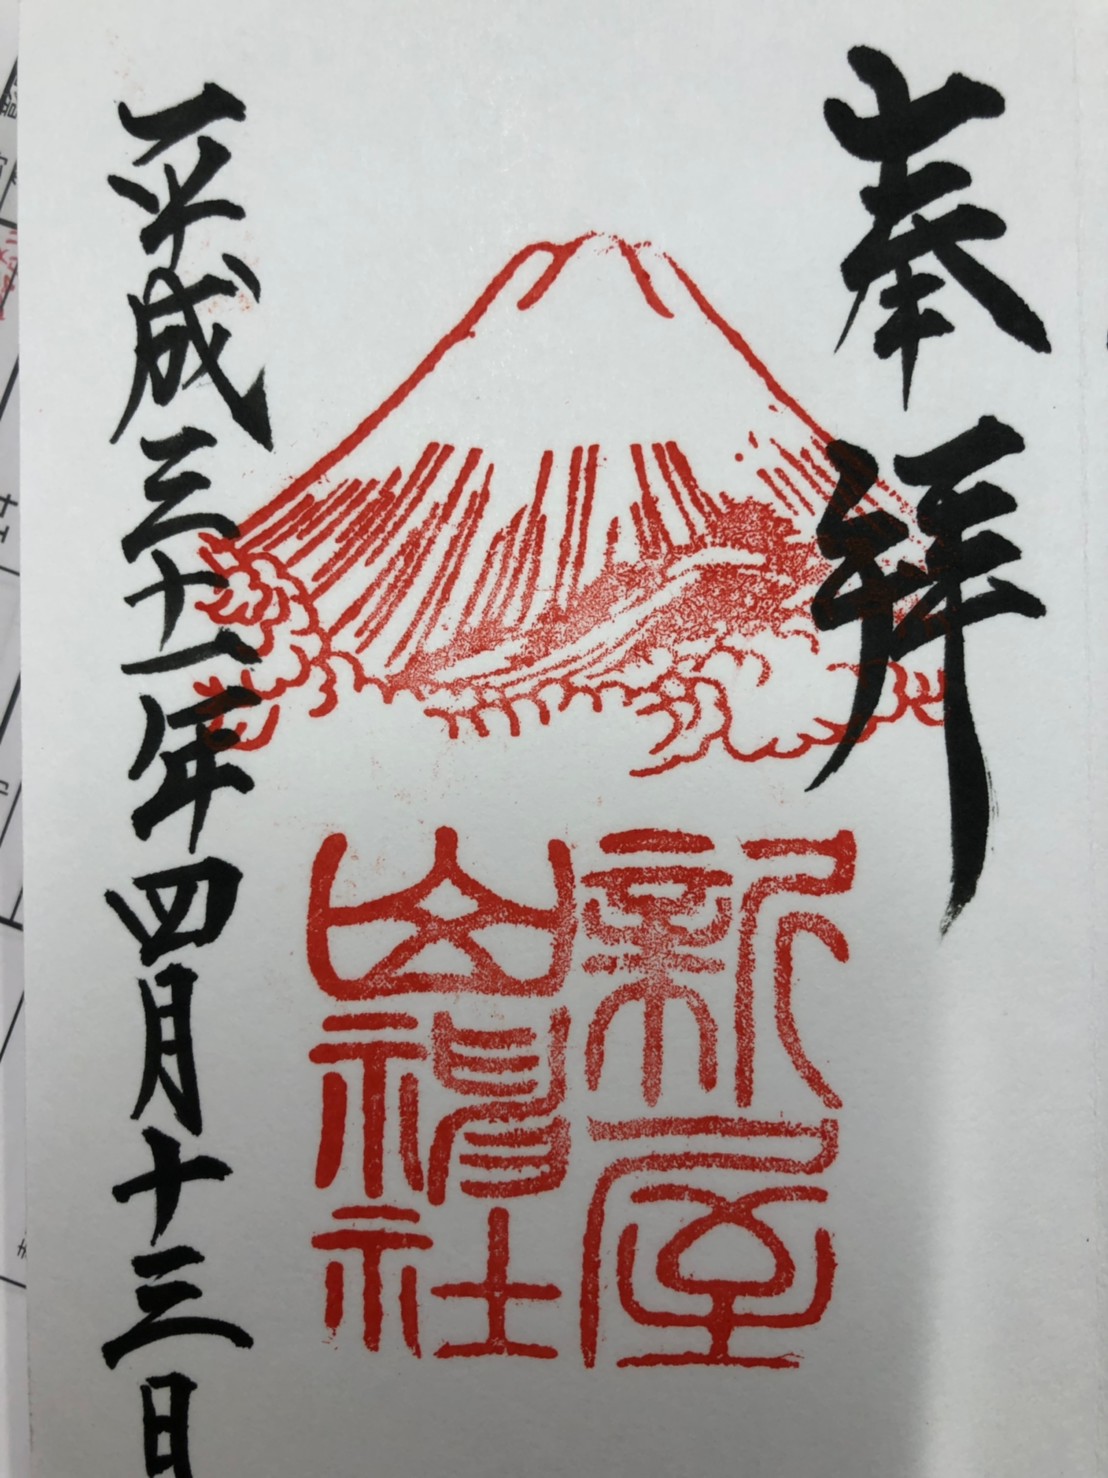 奉拝
新屋
山神社
平成三十一年四月十三日